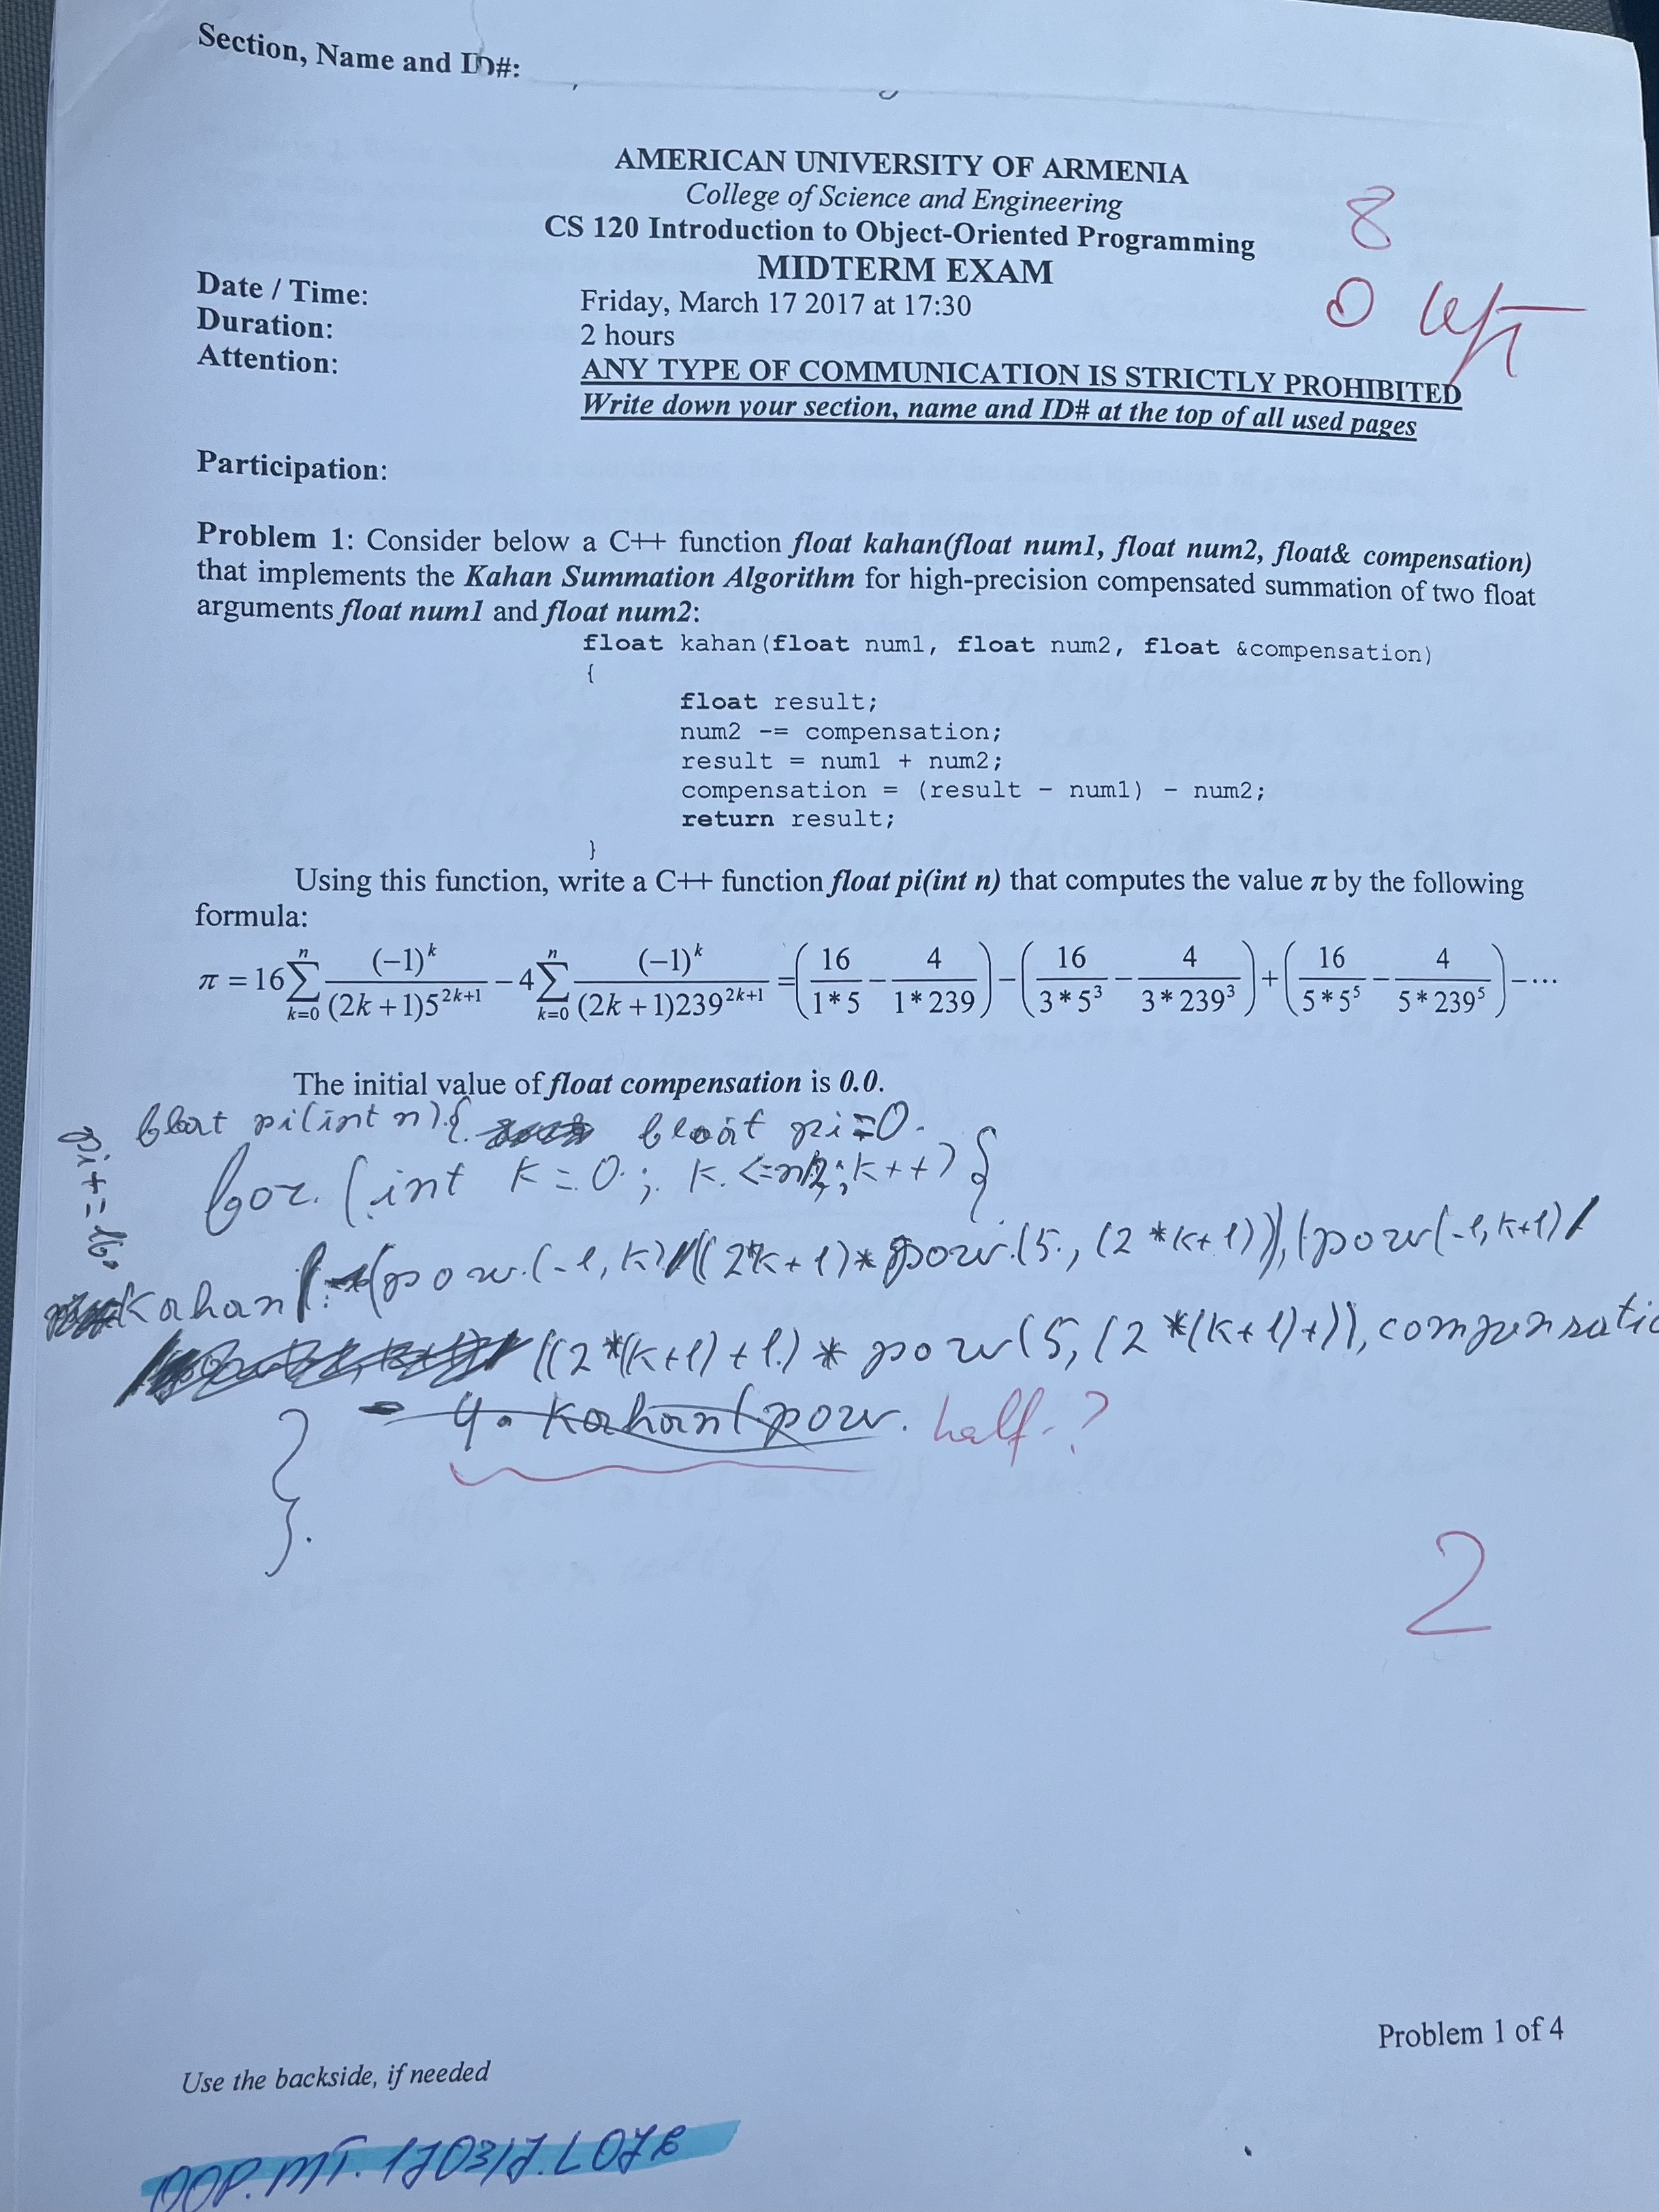 Section, Name and ID#:
AMERICAN UNIVERSITY OF ARMENIA
College of Science and Engineering
CS 120 Introduction to Object-Oriented Programming
MIDTERM EXAM
8
0 left
Date / Time: Friday, March 17 2017 at 17:30
Duration: 2 hours
Attention: ANY TYPE OF COMMUNICATION IS STRICTLY PROHIBITED
Write down your section, name and ID# at the top of all used pages
Participation:
Problem 1: Consider below a C++ function float kahan(float num1, float num2, float& compensation)
that implements the Kahan Summation Algorithm for high-precision compensated summation of two float
arguments float num1 and float num2:
float kahan(float num1, float num2, float &compensation)
{
float result;
num2 -= compensation;
result = num1 + num2;
compensation = (result - num1) - num2;
return result;
}
Using this function, write a C++ function float pi(int n) that computes the value π by the following
formula:
π = 16 ∑_{k=0}^{n} (-1)^k / ((2k+1)5^{2k+1}) − 4 ∑_{k=0}^{n} (-1)^k / ((2k+1)239^{2k+1}) = (16/(1*5) − 4/(1*239)) − (16/(3*5^3) − 4/(3*239^3)) + (16/(5*5^5) − 4/(5*239^5)) − ···
The initial value of float compensation is 0.0.
float pi(int n){ float pi=0.
for (int k=0; k<=n; k++) {
pi+=16.
kahan( (pow(-1,k)/((2*k+1)*pow(5,(2*k+1)),(pow(-1,k+1)/
((2*(k+1)+1)*pow(5,(2*(k+1)+)),compensatio
- 4. kahan(pow. half-?
}
}.
2
Problem 1 of 4
Use the backside, if needed
OOP.MT.170317.L07B